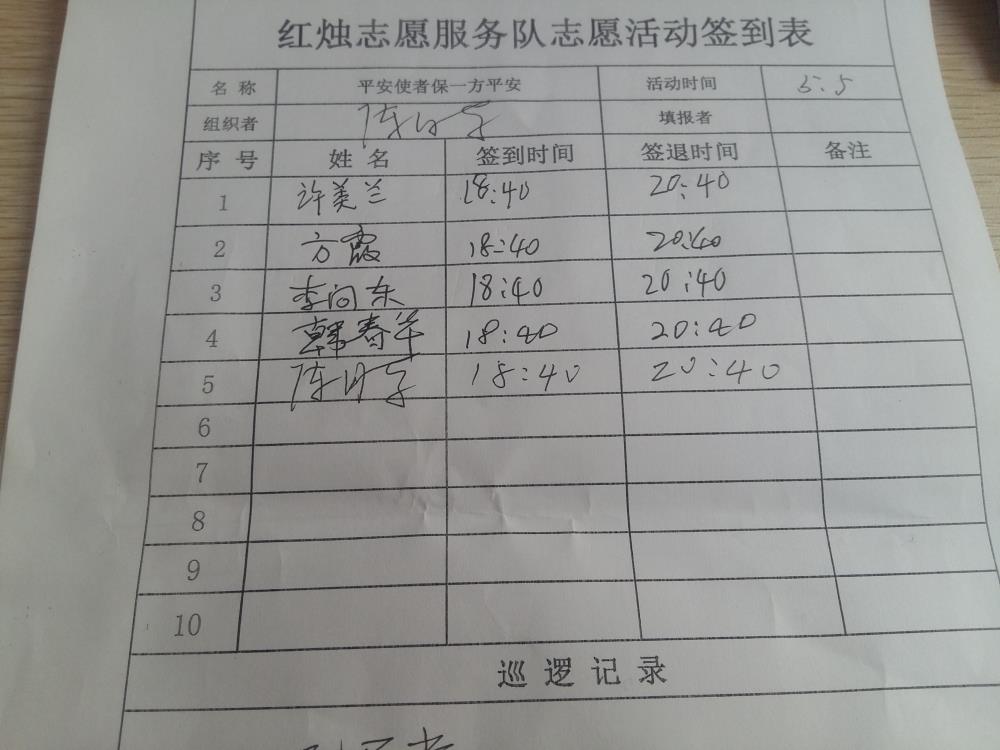 红烛志愿服务队志愿活动签到表
名称 平安使者保一方平安 活动时间 5.5
组织者 填报者
序号 姓名 签到时间 签退时间 备注
1 许美兰 18:40 20:40
2 方霞 18:40 20:40
3 李向东 18:40 20:40
4 韩春华 18:40 20:40
5 18:40 20:40
6
7
8
9
10
巡逻记录